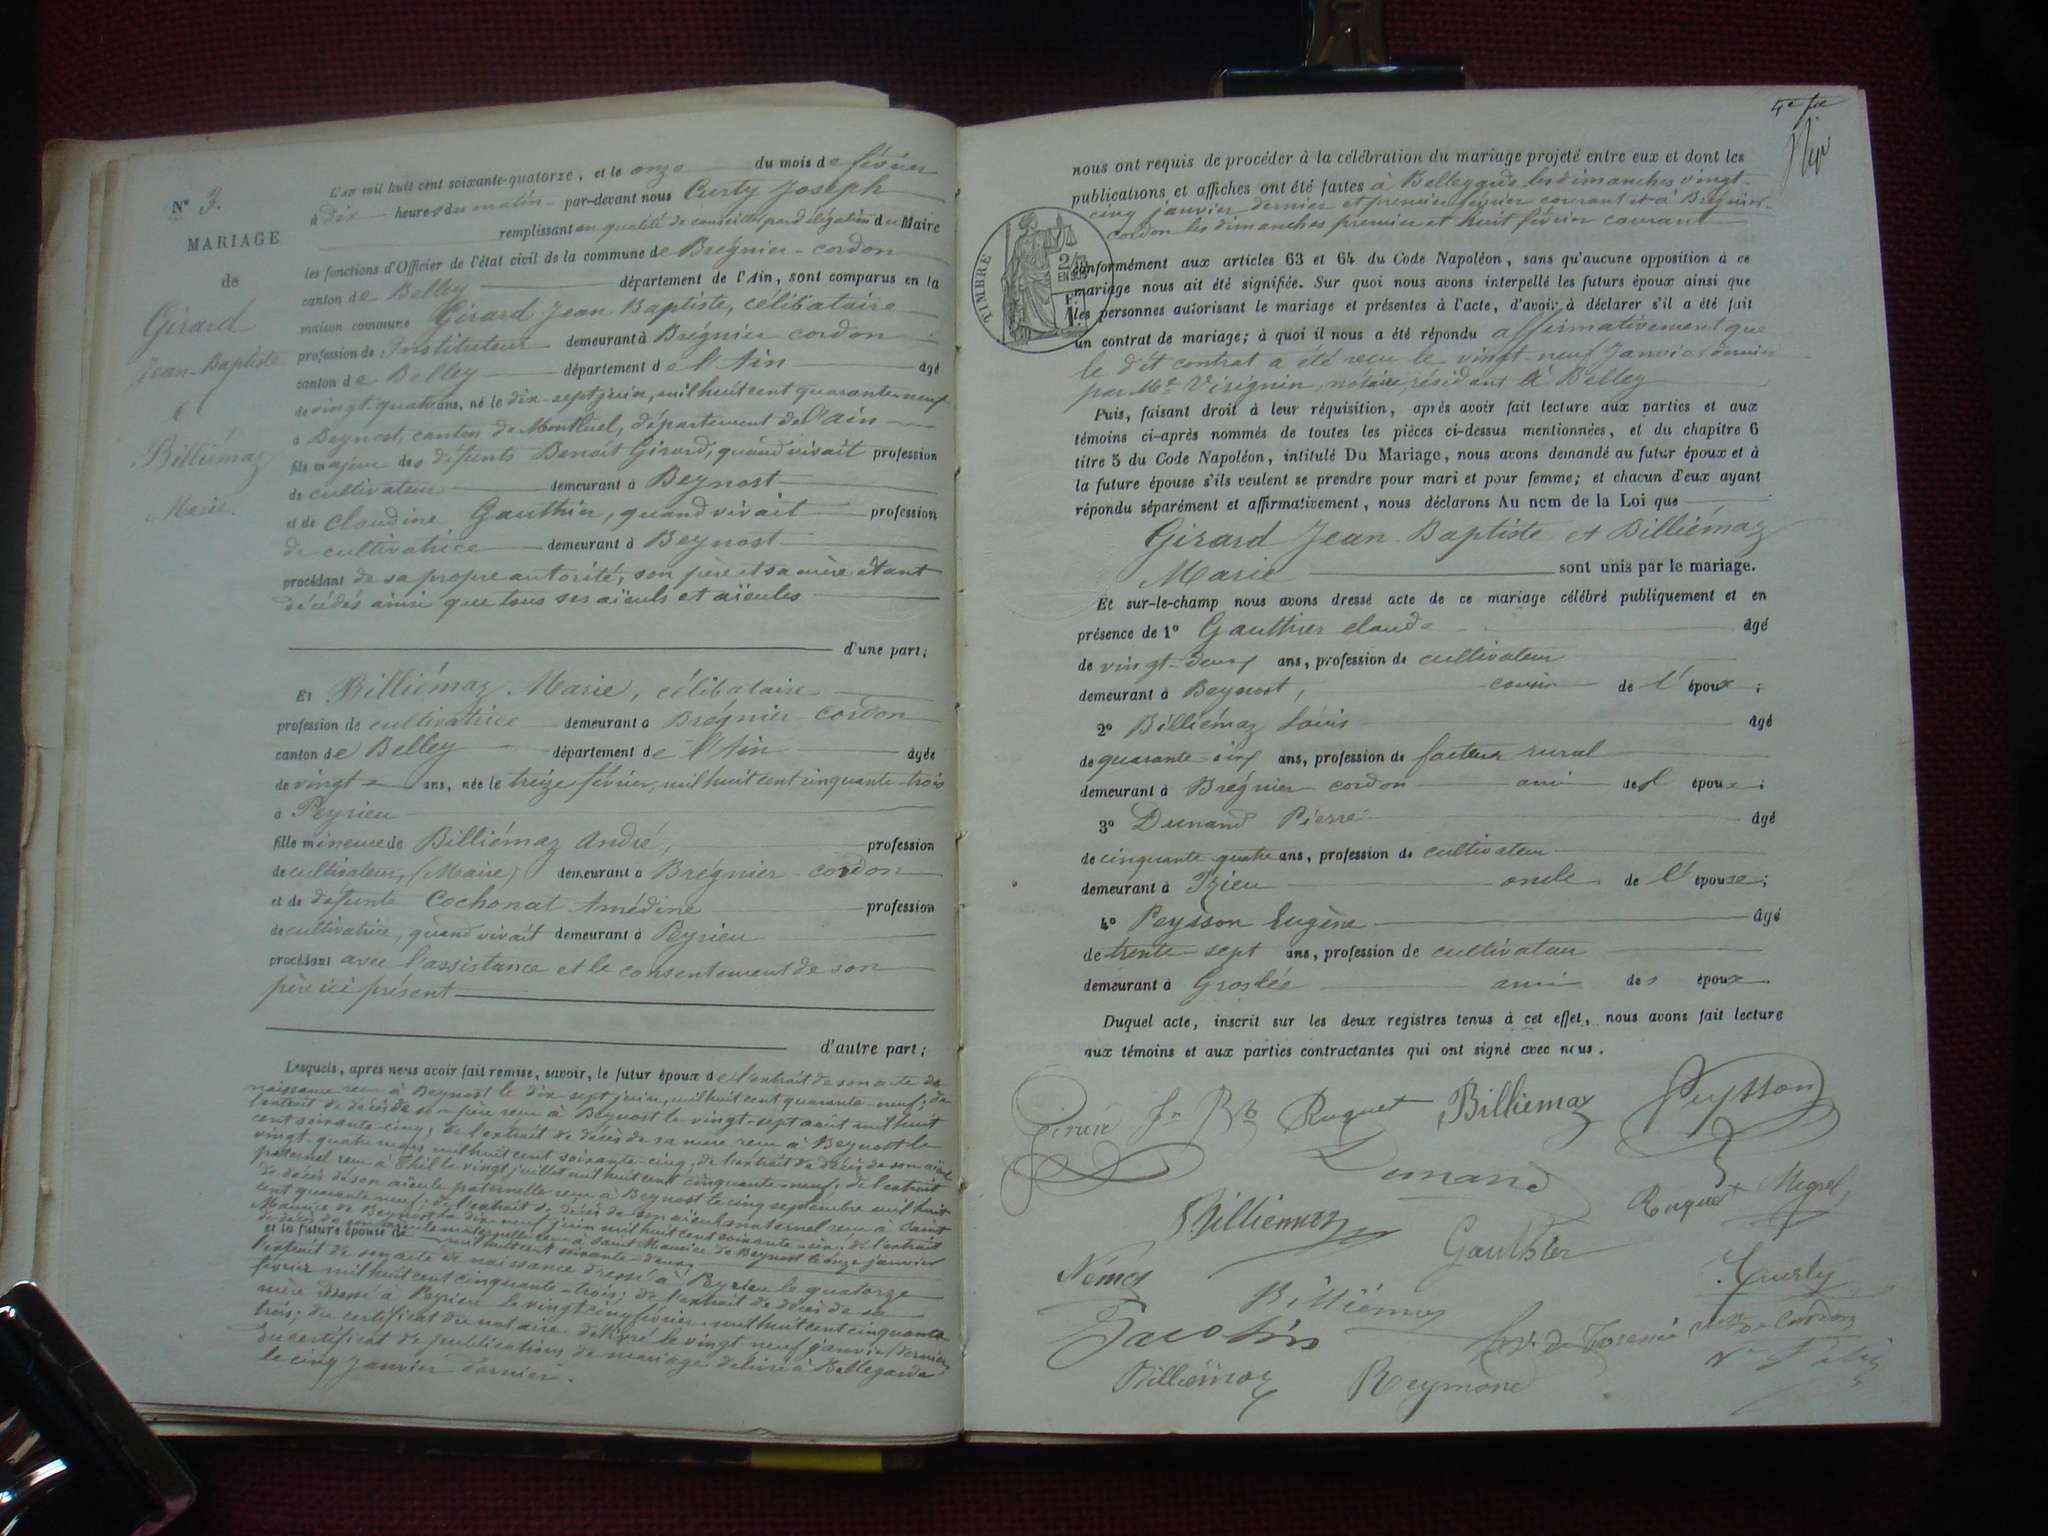 N° 3.
MARIAGE
de
Girard
Jean-Baptiste
et
Billiémaz
Marie.
L'an mil huit cent soixante-quatorze, et le onze du mois de février
à dix heures du matin par-devant nous Curty Joseph
remplissant en qualité de conseiller par délégation du Maire
les fonctions d'Officier de l'état civil de la commune de Brégnier-cordon
canton de Belley département de l'Ain, sont comparus en la
maison commune Girard Jean Baptiste, célibataire
profession de Instituteur demeurant à Brégnier cordon
canton de Belley département de l'Ain âgé
de vingt-quatre ans, né le dix-sept juin, mil huit cent quarante-neuf
à Beynost, canton de Montluel, département de l'ain
fils majeur des défunts Benoît Girard, quand vivait profession
de cultivateur demeurant à Beynost
et de claudine Gauthier, quand vivait profession
de cultivatrice demeurant à Beynost
procédant de sa propre autorité, son père et sa mère étant
décédés ainsi que tous ses aïeuls et aïeules
d'une part;
Et Billiémaz Marie, célibataire
profession de cultivatrice demeurant à Brégnier-cordon
canton de Belley département de l'Ain âgée
de vingt ans, née le treize février, mil huit cent cinquante-trois
à Peyrieu
fille mineure de Billiémaz André, profession
de cultivateur, (Maire) demeurant à Brégnier-cordon
et de défunte Cochonat Amédine profession
de cultivatrice, quand vivait demeurant à Peyrieu
procédant avec l'assistance et le consentement de son
père ici présent
d'autre part;
Lesquels, après nous avoir fait remise, savoir, le futur époux de l'extrait de son acte de
naissance reçu à Beynost le dix-sept juin, mil huit cent quarante-neuf; de
l'extrait de décès de son père reçu à Beynost le vingt-sept août mil huit
cent soixante-cinq; de l'extrait de décès de sa mère reçu à Beynost le
vingt-quatre mars mil huit cent soixante-cinq; de l'extrait de décès de son aïeul
paternel reçu à Thil le vingt juillet mil huit cent cinquante-neuf; de l'extrait
de décès de son aïeule paternelle reçu à Beynost le cinq septembre mil huit
cent quarante neuf; de l'extrait de décès de son aïeul maternel reçu à Saint
Maurice de Beynost le dix-neuf juin mil huit cent soixante-six; de l'extrait
de décès de son aïeule maternelle reçu à Saint Maurice de Beynost le onze janvier
et la future épouse de mil huit cent soixante-deux
l'extrait de son acte de naissance dressé à Peyrieu le quatorze
février mil huit cent cinquante-trois; de l'extrait de décès de sa
mère à Peyrieu le vingt cinq février mil huit cent cinquante
trois; du certificat du notaire délivré le vingt neuf janvier dernier
du certificat de publications de mariage délivré à Bellegarde
le cinq Janvier dernier.
4e fe
nous ont requis de procéder à la célébration du mariage projeté entre eux et dont les
publications et affiches ont été faites à Bellegarde les dimanches vingt-
cinq janvier dernier et premier février courant et à Brégnier-
cordon les dimanches premier et huit février courant
TIMBRE
2/10
EN SUS
conformément aux articles 63 et 64 du Code Napoléon, sans qu'aucune opposition à ce
mariage nous ait été signifiée. Sur quoi nous avons interpellé les futurs époux ainsi que
les personnes autorisant le mariage et présentes à l'acte, d'avoir à déclarer s'il a été fait
un contrat de mariage; à quoi il nous a été répondu affirmativement que
le dit contrat a été reçu le vingt-neuf Janvier dernier
par Me Virignin, notaire, résidant à Belley
Puis, faisant droit à leur réquisition, après avoir fait lecture aux parties et aux
témoins ci-après nommés de toutes les pièces ci-dessus mentionnées, et du chapitre 6
titre 5 du Code Napoléon, intitulé Du Mariage, nous avons demandé au futur époux et à
la future épouse s'ils veulent se prendre pour mari et pour femme; et chacun d'eux ayant
répondu séparément et affirmativement, nous déclarons Au nom de la Loi que
Girard Jean Baptiste et Billiémaz
Marie sont unis par le mariage.
Et sur-le-champ nous avons dressé acte de ce mariage célébré publiquement et en
présence de 1° Gauthier claude âgé
de vingt-deux ans, profession de cultivateur
demeurant à Beynost, cousin de l'époux;
2° Billiémaz Louis âgé
de quarante-cinq ans, profession de facteur rural
demeurant à Brégnier cordon ami de l'époux;
3° Dunand Pierre âgé
de cinquante quatre ans, profession de cultivateur
demeurant à Izieu oncle de l'épouse;
4° Peysson Eugène âgé
de trente-sept ans, profession de cultivateur
demeurant à Groslée ami des époux
Duquel acte, inscrit sur les deux registres tenus à cet effet, nous avons fait lecture
aux témoins et aux parties contractantes qui ont signé avec nous.
Girard Jn Bte Ruquet Billiemaz Peysson
Dunand
Billiemaz Gauthier Ruquet
Billiémaz Curty
Jacobin
Billiémaz Reymond